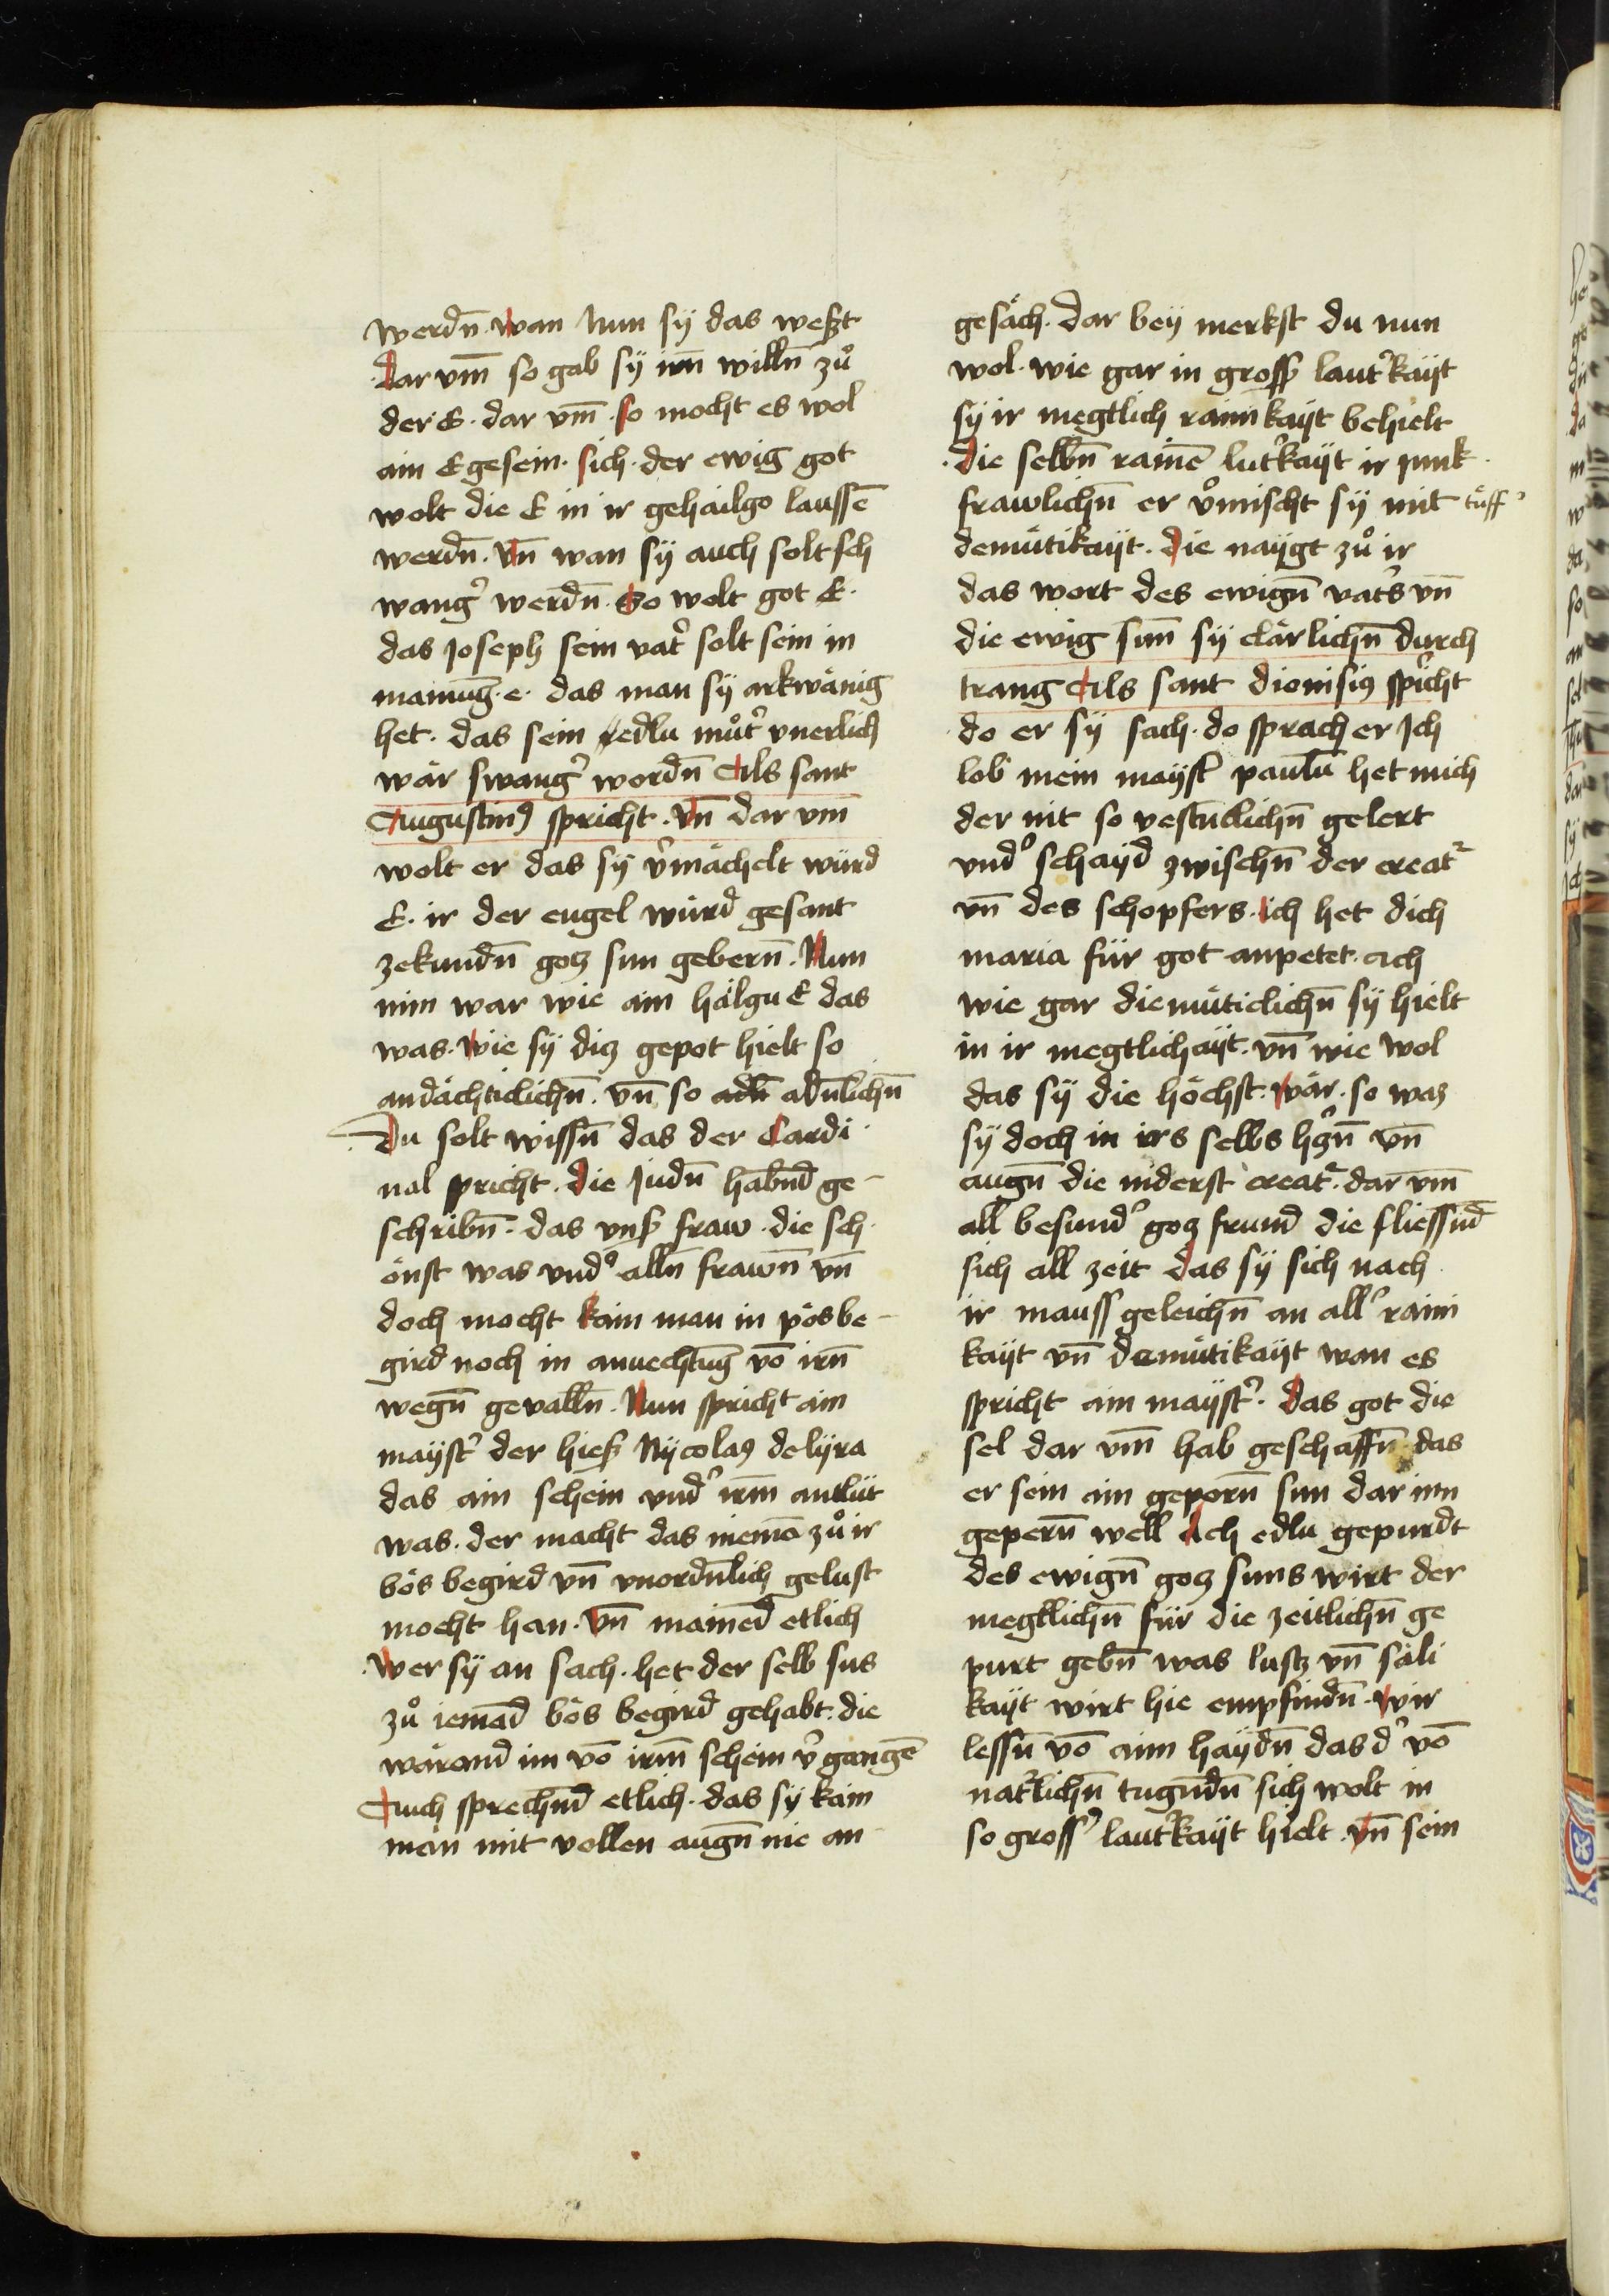 werdn̄. wan Nun sÿ das weßt
dar vm̄ so gab sÿ irn̄ willn̄ zuͦ
der E. dar vm̄. so mocht es wol
ain E gesein. sich. der ewig got
wolt die E in ir gehailgo laussē
werdn̄. vn̄ wan sÿ auch solt sch
wangʾ werdn̄. So wolt got E.
das Joseph sein vatʾ solt sein in
mainūg. e. das man sÿ arkwänig
het. das sein edlu muͦtʾ vnerlich
wär swangʾ wordn̄ Als sant
Augustinꝰ spricht. vn̄ dar vm̄
wolt er das sÿ vʾmächelt würd
E. ir der engel würd gesant
zekundn̄ gotz sun gebern̄. Nun
nim war wie ain hälgu E das
was. wie sÿ ditz gepot hielt so
andächticlichn̄. vn̄ so adn̄ adn̄lichn̄
Du solt wissn̄ das der Cardi
nal spricht. die Judn̄ habn̄d ge-
schribn̄. das vnß fraw. die sch
önst was vndʾ alln̄ frawn̄ vn̄
doch mocht kain man in pös be-
gird noch in anuechtūg vō irn̄
wegn̄ gevalln̄. Nun spricht ain
maÿstʾ der hieß Nÿcolaꝰ delÿra
das ain schein vndʾ irm̄ antlüt
was. der macht das niemō zuͦ ir
bös begird vn̄ vnordn̄lich gelust
mocht han. vn̄ mained̄ etlich
wer sÿ an sach. het der selb sus
zuͦ iemad̄ bös begird gehabt. die
wärand im vō irm̄ schein vʾgangē
Auch sprechn̄d etlich. das sÿ kain
man mit vollen augn̄ nie an
gesäch. dar beÿ merkst du nun
wol. wie gar in grosß lautʾkaÿt
sÿ ir megtlich rainn̄kaÿt behielt
die selbn̄ rainē lutʾkaÿt ir junk
frawlichn̄ er vʾmischt sÿ mit tüffʾ
demütikaÿt. die naÿgt zuͦ ir
das wort des ewign̄ vatʾs vn̄
die ewig sun̄ sÿ clärlichn̄ durch
trang Als sant dionisiꝰ spʾicht
do er sÿ sach. do sprach er Ich
lob mein maÿstʾ paulū het mich
der nit so vestn̄clichn̄ gelert
vndʾ schaÿd zwischn̄ der creatʾ
vn̄ des schopfers. ich het dich
maria für got anpetet. ach
wie gar diemüticlichn̄ sÿ hielt
in ir megtlichaÿt. vn̄ wie wol
das sÿ die höchst. wär. so waz
sÿ doch in irs selbs hʾzn̄ vn̄
augn̄ die niderst creatʾ. dar vm̄
all besundʾ gotz frund die fliessn̄d
sich all zeit das sÿ sich nach
ir mauss geleichn̄ an allʾ raini
kaÿt vn̄ demütikaÿt wan es
spricht ain maÿstʾ. das got die
sel dar vm̄ hab geschaffn̄. das
er sein ain geporn̄ sun dar inn
gepern̄ well Ach edlu gepurdt
des ewign̄ gotz suns wirt der
megtlichn̄ für die zeitlichn̄ ge
purt gebn̄ was lustz vn̄ säli
kaÿt wirt hie empfindn̄. wir
lessn̄ vō aim haÿdn̄ das dʾ vō
natʾlichn̄ tugn̄dn̄ sich wolt in
so grossʾ lautʾkaÿt hielt. vn̄ sein